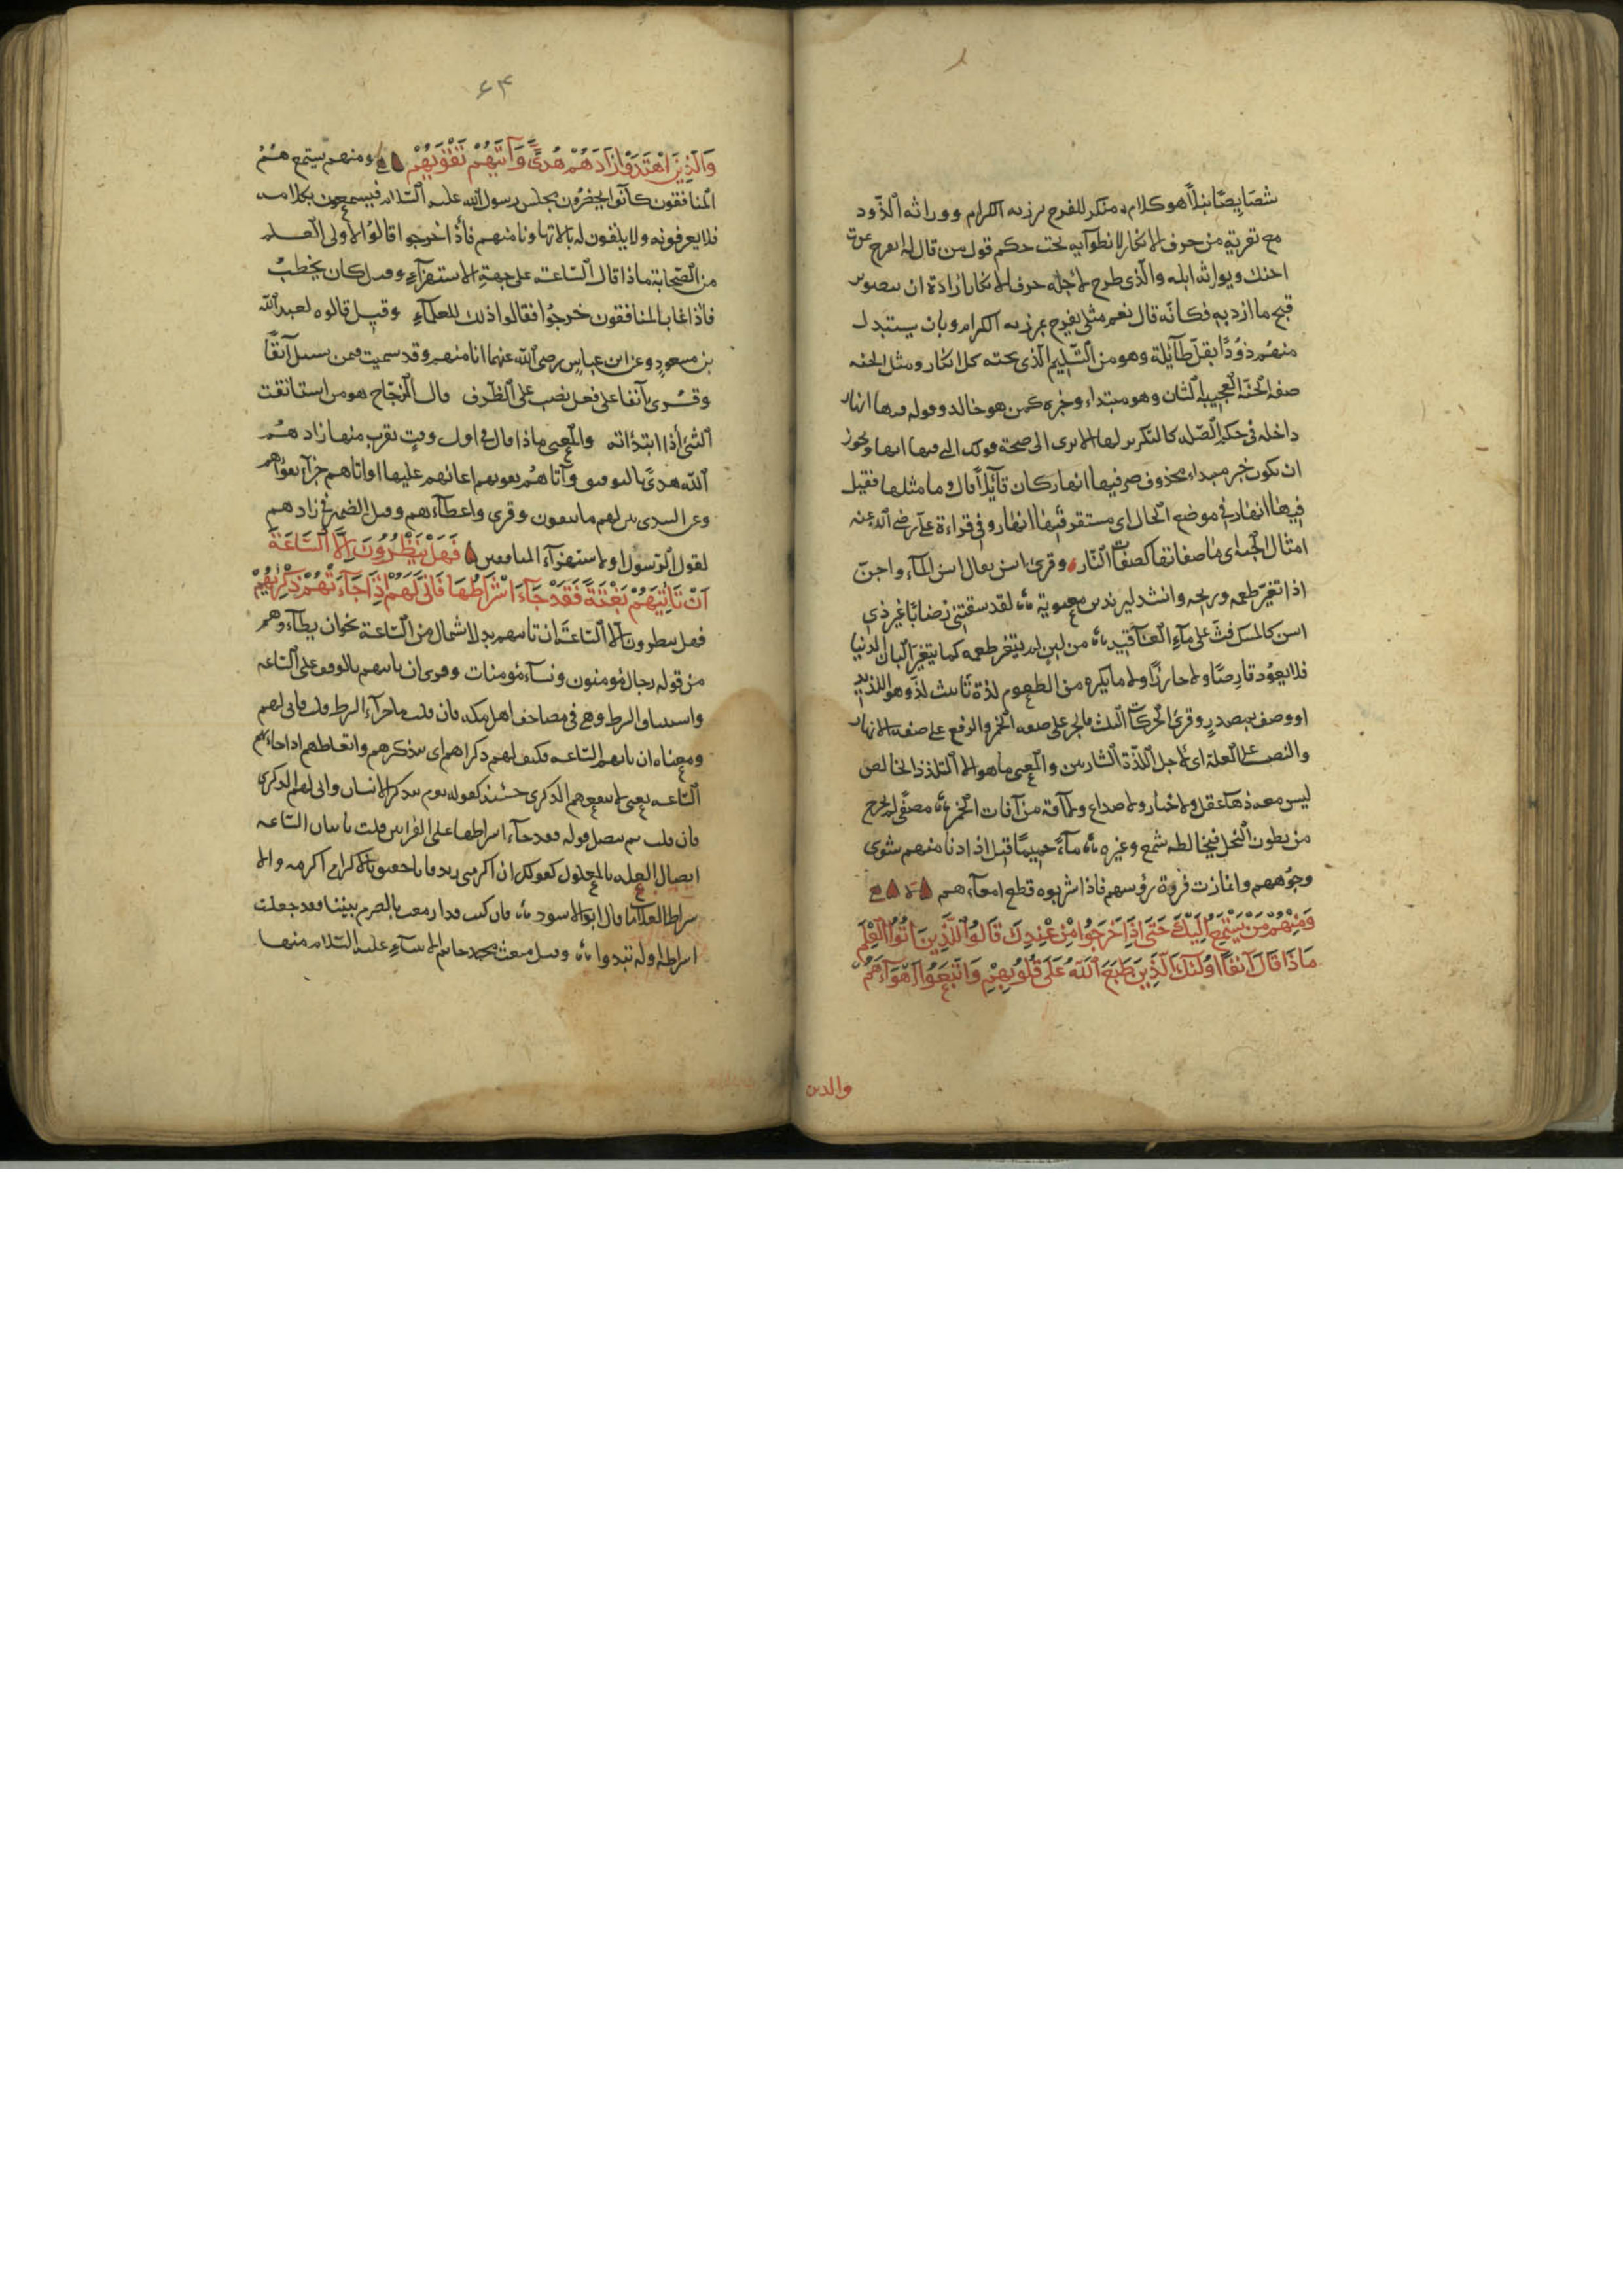 شصايصا نبلا هو كلام منكر للفرح برزيه الكرام ووراثه الذود
مع تعريته من حرف الانكار لانطوآيه تحت حكم قول من قال له اىفرح بموت
اخيك ويوراثه ابله والذى طرح لاجله حرف الانكار ارادة ان يصور
قبح ما ازن به فكانه قال نعم مثلى يفرح بمرزيه الكرام وبان يستبدل
منهم ذودًا يقل طآيله وهو من التسليم الذى تحته كل انكار ومثل الجنه
صفه الجنة العجيبه الشان وهو مبتداء وخبره كمن هو خالد وقوله فيها انهار
داخله فى حكم الصله كالتكرير لها الا ترى الى صحة قولك التى فيها انها ويجوز
ان تكون خبر مبداء محذوف هى فيها انهار كان قآئلا قال وما مثلها فقيل
فيها انهار فى موضع الحال اى مستقر فيها انهار وفى قراءة على رضى الله عنه
امثال الجنه اى ما صفاتها كصفات النار وقرئ اسن يقال اسن المآء واجن
اذا تغير طعمه وريحه وانشد ليزيد بن معوية لقد سقتنى رضابا غير ذى
اسن كالمسك فث على مآء العناقيد من لبن لم يتغير طعمه كما يتغير البان الدنيا
فلا يعود قارصا ولا حازرا ولا ما يكره من الطعوم لذة تانيث لذ وهو اللذيذ
او وصف بمصدر وقرئ الحركات الثلث فالجر على صفه الخمر والرفع على صفه الانهار
والنصب على العلة اى لاجل اللذة الشاربين والمعنى ما هو الا التلذذ الخالص
ليس معه ذهاب عقل ولا خمار ولا صداع ولا آفة من آفات الخمر مصفى لم يخرج
من بطون النحل فيخالطه شمع وغيره مآء حميما قيل اذا دنا منهم شوى
وجوههم وانمازت فروة رؤسهم فاذا شربوه قطع امعآءهم
وَمِنْهُمْ مَنْ يَسْتَمِعُ اِلَيْكَ حَتَى اِذَا خَرَجُوا مِنْ عِنْدِكَ قَالُوا لِلَّذِينَ اُتُوا الْعِلْمَ
مَاذَا قَالَ آنِفًا اُولئِكَ الَّذِينَ طَبَعَ اللَّهُ عَلَى قُلُوبِهِمْ وَاتَّبَعُوا اَهْوَآءَهُمْ
والدين
٦٣
وَالَّذِينَ اهْتَدَوْا زَادَهُمْ هُدىً وَآتيهُمْ تَقْويهُمْ ومنهم يستمع هُمُ
المنافقون كانوا يحضرون مجلس رسول الله عليه السلام فيسمعون كلامه
فلا يعرفونه ولا يلقون له بالا تهاونا منهم فأذا خرجوا قالوا لاولى العلم
من الصحابة ماذا قال الساعة على جهة الاستهزآء وقيل كان يخطب
فأذا عاب المنافقون خرجوا فقالوا ذلك للعلمآء وقيل قالوه لعبد الله
بن مسعود وعن ابن عباس رضى الله عنهما انا منهم وقد سميت فيمن سئل آنفا
وقرئ آنفا على فعل نصب على الظرف قال الزجاج هو من استانفت
الشئ أذا ابتدأته والمعنى ماذا قال فى اول وقت يقرب منها زادهم
الله هدى بالتوفيق وآتاهم تقويهم اعانهم عليها او اتاهم جزآء تقواهم
وعن السدى بين لهم ما يتقون وقرى واعطآءهم وقيل الضمير فى زادهم
لقول الرسول او لاستهزآء المنافقين فَهَلْ يَنْظُرُونَ اِلَّا السَّاعَةَ
اَنْ تَأتِيَهُمْ بَغْتَةً فَقَدْ جَآءَ اَشْرَاطُهَا فَانَّى لَهُمْ اِذَا جَآءَتْهُمْ ذِكْريهُمْ
فهل ينظرون الا الساعة ان تاتيهم بدل اشتمال من الساعة نحو ان يطآءوهم
من قوله رجال مؤمنون ونسآء مؤمنات وقرى ان تاتهم بالوقف على الساعه
واستيناف الشرط وهى فى مصاحف اهل مكه فان قلت ما جزآء الشرط قلت فانى لهم
ومعناه ان تاتهم الساعه فكيف لهم ذكراهم اى تذكرهم واتعاظهم اذا جاءتهم
الساعه يعنى لا ينفعهم الذكرى حينئذ كقوله يوم يتذكر الانسان وانى له الذكرى
فان قلت بم يتصل قوله فقد جآء اشراطها على القرأتين قلت باتيان الساعه
ايصال العله بالمعلول كقولك ان اكرمنى زيد فانا حقيق بالاكرام اكرمه والا
شراط العلامات قال ابو الاسود فان كنت قد ازمعت بالصرم بيننا فقد جعلت
اشراط اوله تبدوا وقيل مبعث محمد خاتم الانبيآء عليه السلام منها